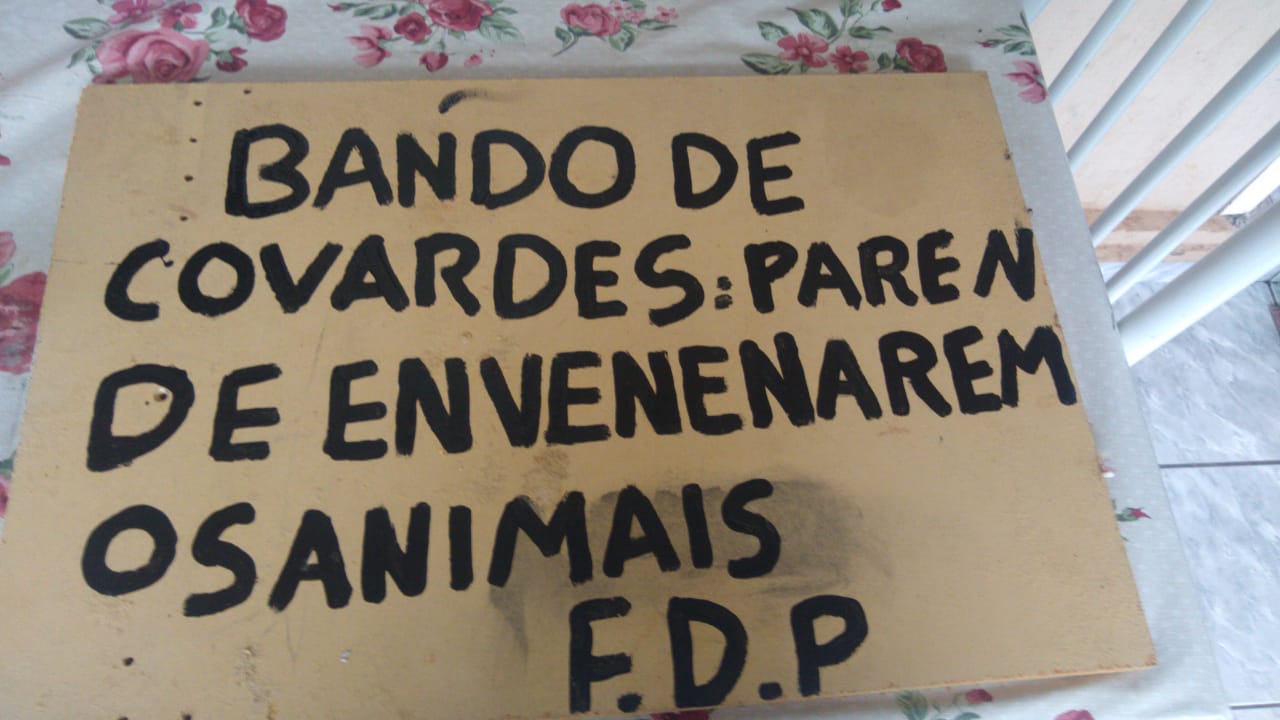 BANDO DE
COVARDES: PAREN
DE ENVENENAREM
OS ANIMAIS
F.D.P